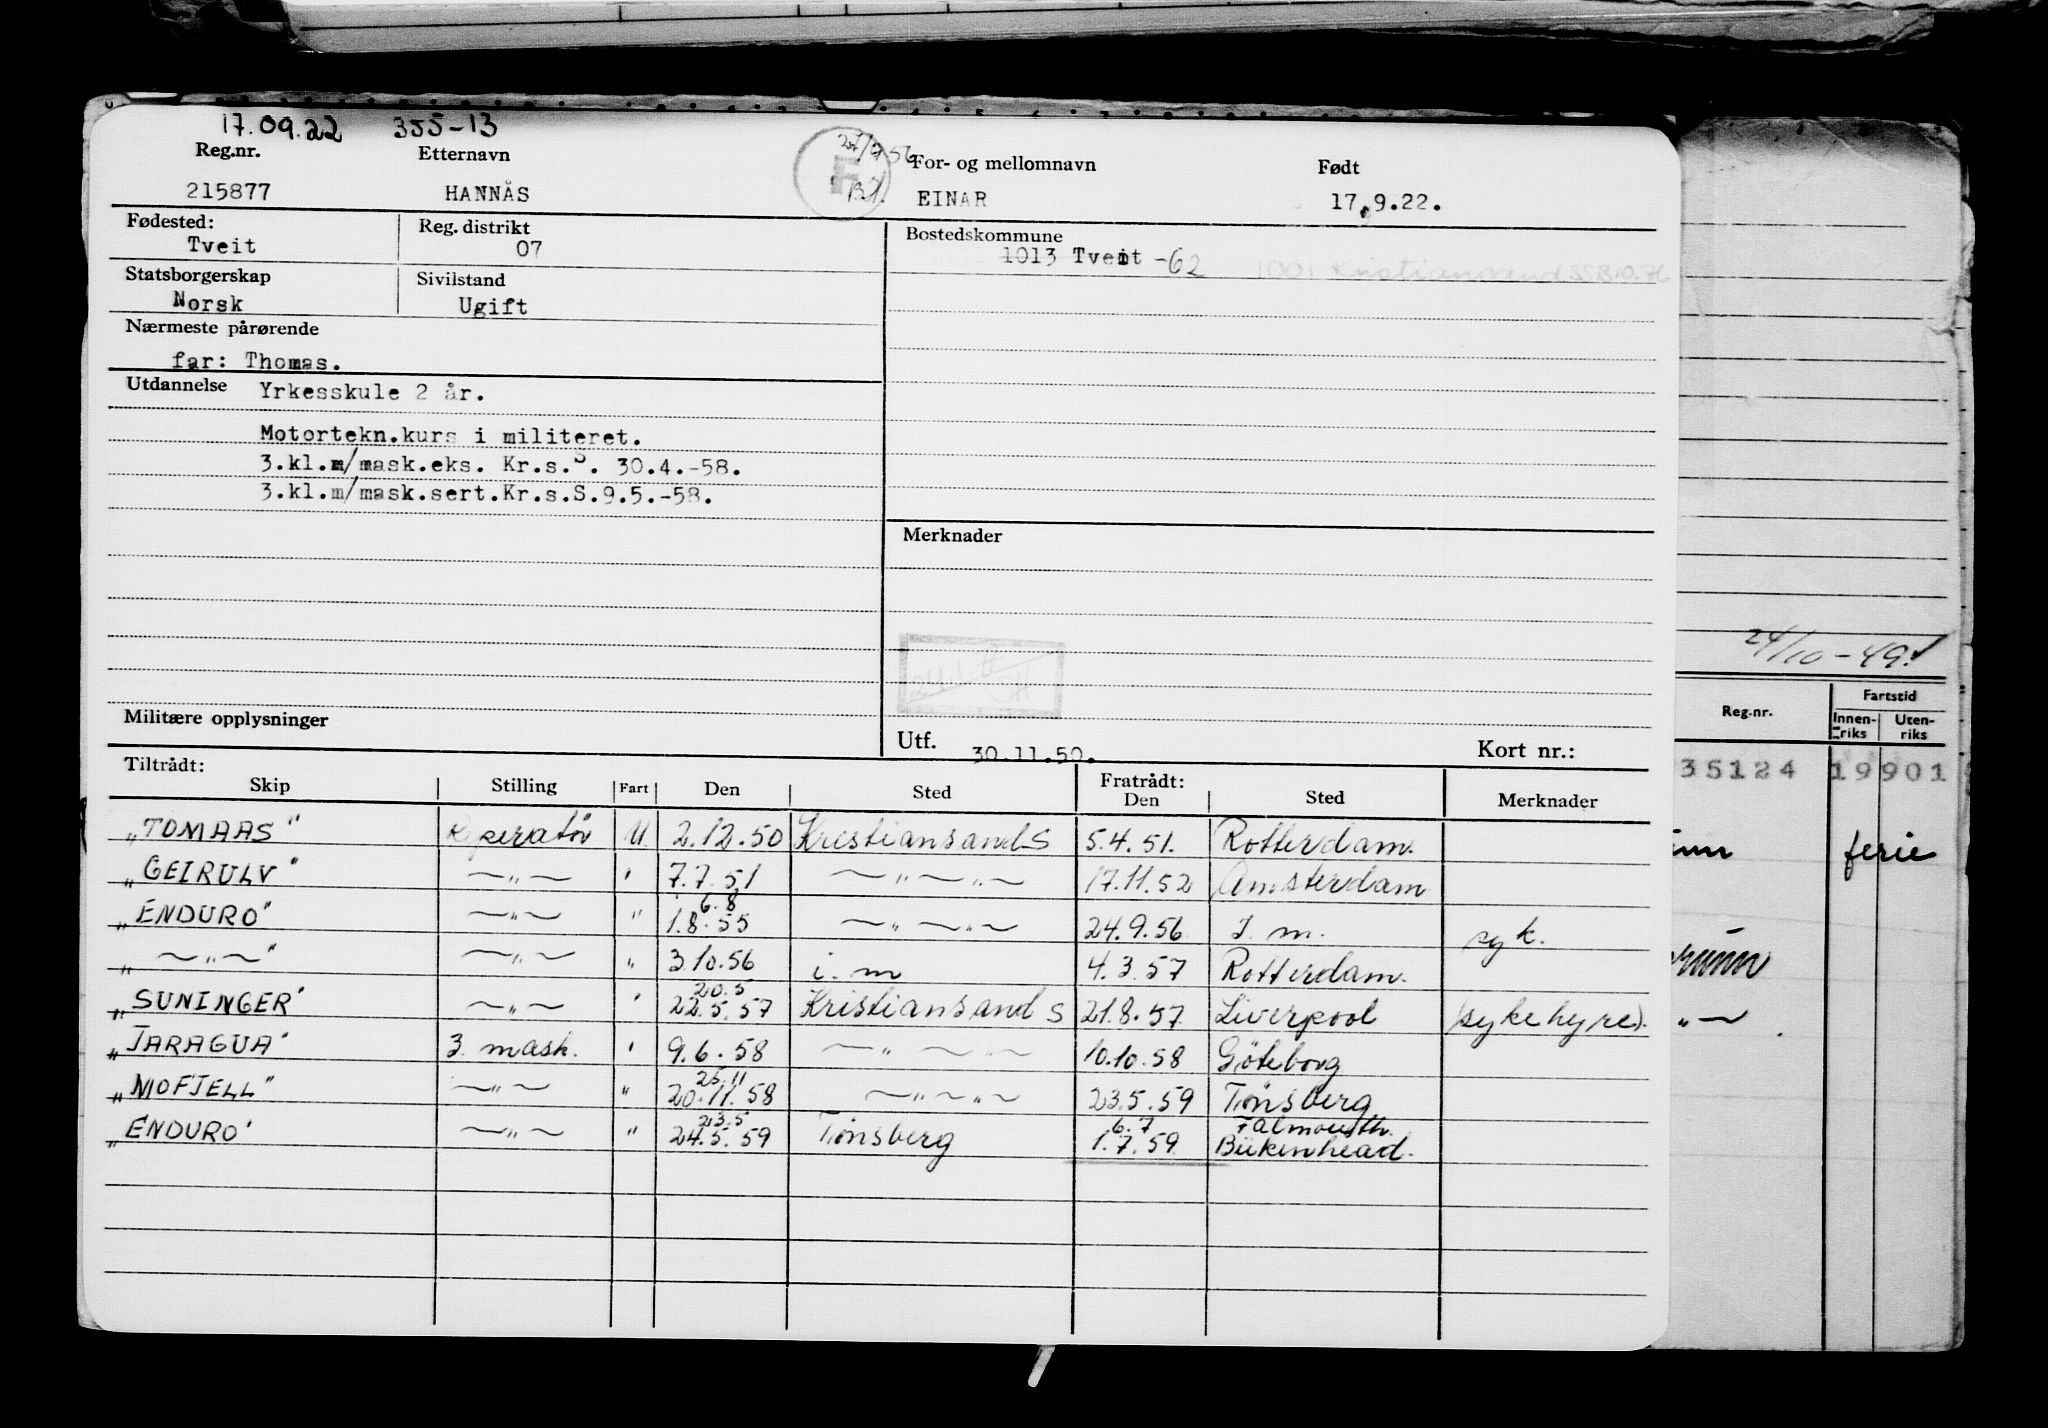 17.09.22 355-13
Reg.nr. Etternavn For- og mellomnavn Født
215877 HANNÅS EINAR 17.9.22.
Fødested: Reg. distrikt Bostedskommune
Tveit 07 1013 Tveit -62 1001 Kristiansand
Statsborgerskap Sivilstand
Norsk Ugift
Nærmeste pårørende
far: Thomas.
Utdannelse Yrkesskule 2 år.
Motortekn.kurs i militeret.
3.kl.m/mask.eks. Kr.s.S. 30.4.-58.
3.kl.m/mask.sert.Kr.s.S.9.5.-58.
Merknader
Militære opplysninger
Utf. 30.11.50. Kort nr.:
Tiltrådt: Fratrådt:
Skip Stilling Fart Den Sted Den Sted Merknader
„TOMAAS" Reperatör U. 2.12.50 Kristiansand S 5.4.51. Rotterdam.
„GEIRULV" —„— " 7.7.51 —„—„— 17.11.52 Amsterdam
6.8
„ENDURO" —„— " 1.8.55 —„—„— 24.9.56 I. m. syk.
„ —„— " —„— " 3.10.56 i. m 4.3.57 Rotterdam.
20.5
„SUNINGER" —„— " 22.5.57 Kristiansand S 21.8.57 Liverpool (sykehyre).
„JARAGUA" 3. mask. " 9.6.58 —„—„— 10.10.58 Göteborg
25.11
„MOFJELL" —„— " 20.11.58 —„—„— 23.5.59 Tönsberg
23.5 6.7 Falmouth.
„ENDURO" —„— " 24.5.59 Tönsberg 1.7.59 Birkenhead.
24/10-49.
Reg.nr. Fartstid
Innen-riks Uten-riks
35124 19901
ferie
—„—